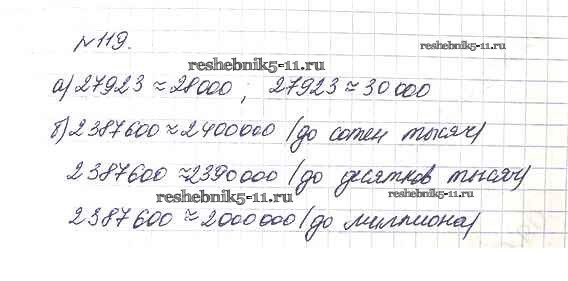 №119.
reshebnik5-11.ru
reshebnik5-11.ru
а) 27923 ≈ 28000 ; 27923 ≈ 30000
б) 2387600 ≈ 2400000 (до сотен тысяч)
2387600 ≈ 2390000 (до десятков тысяч)
reshebnik5-11.ru
reshebnik5-11.ru
2387600 ≈ 2000000 (до миллиона)